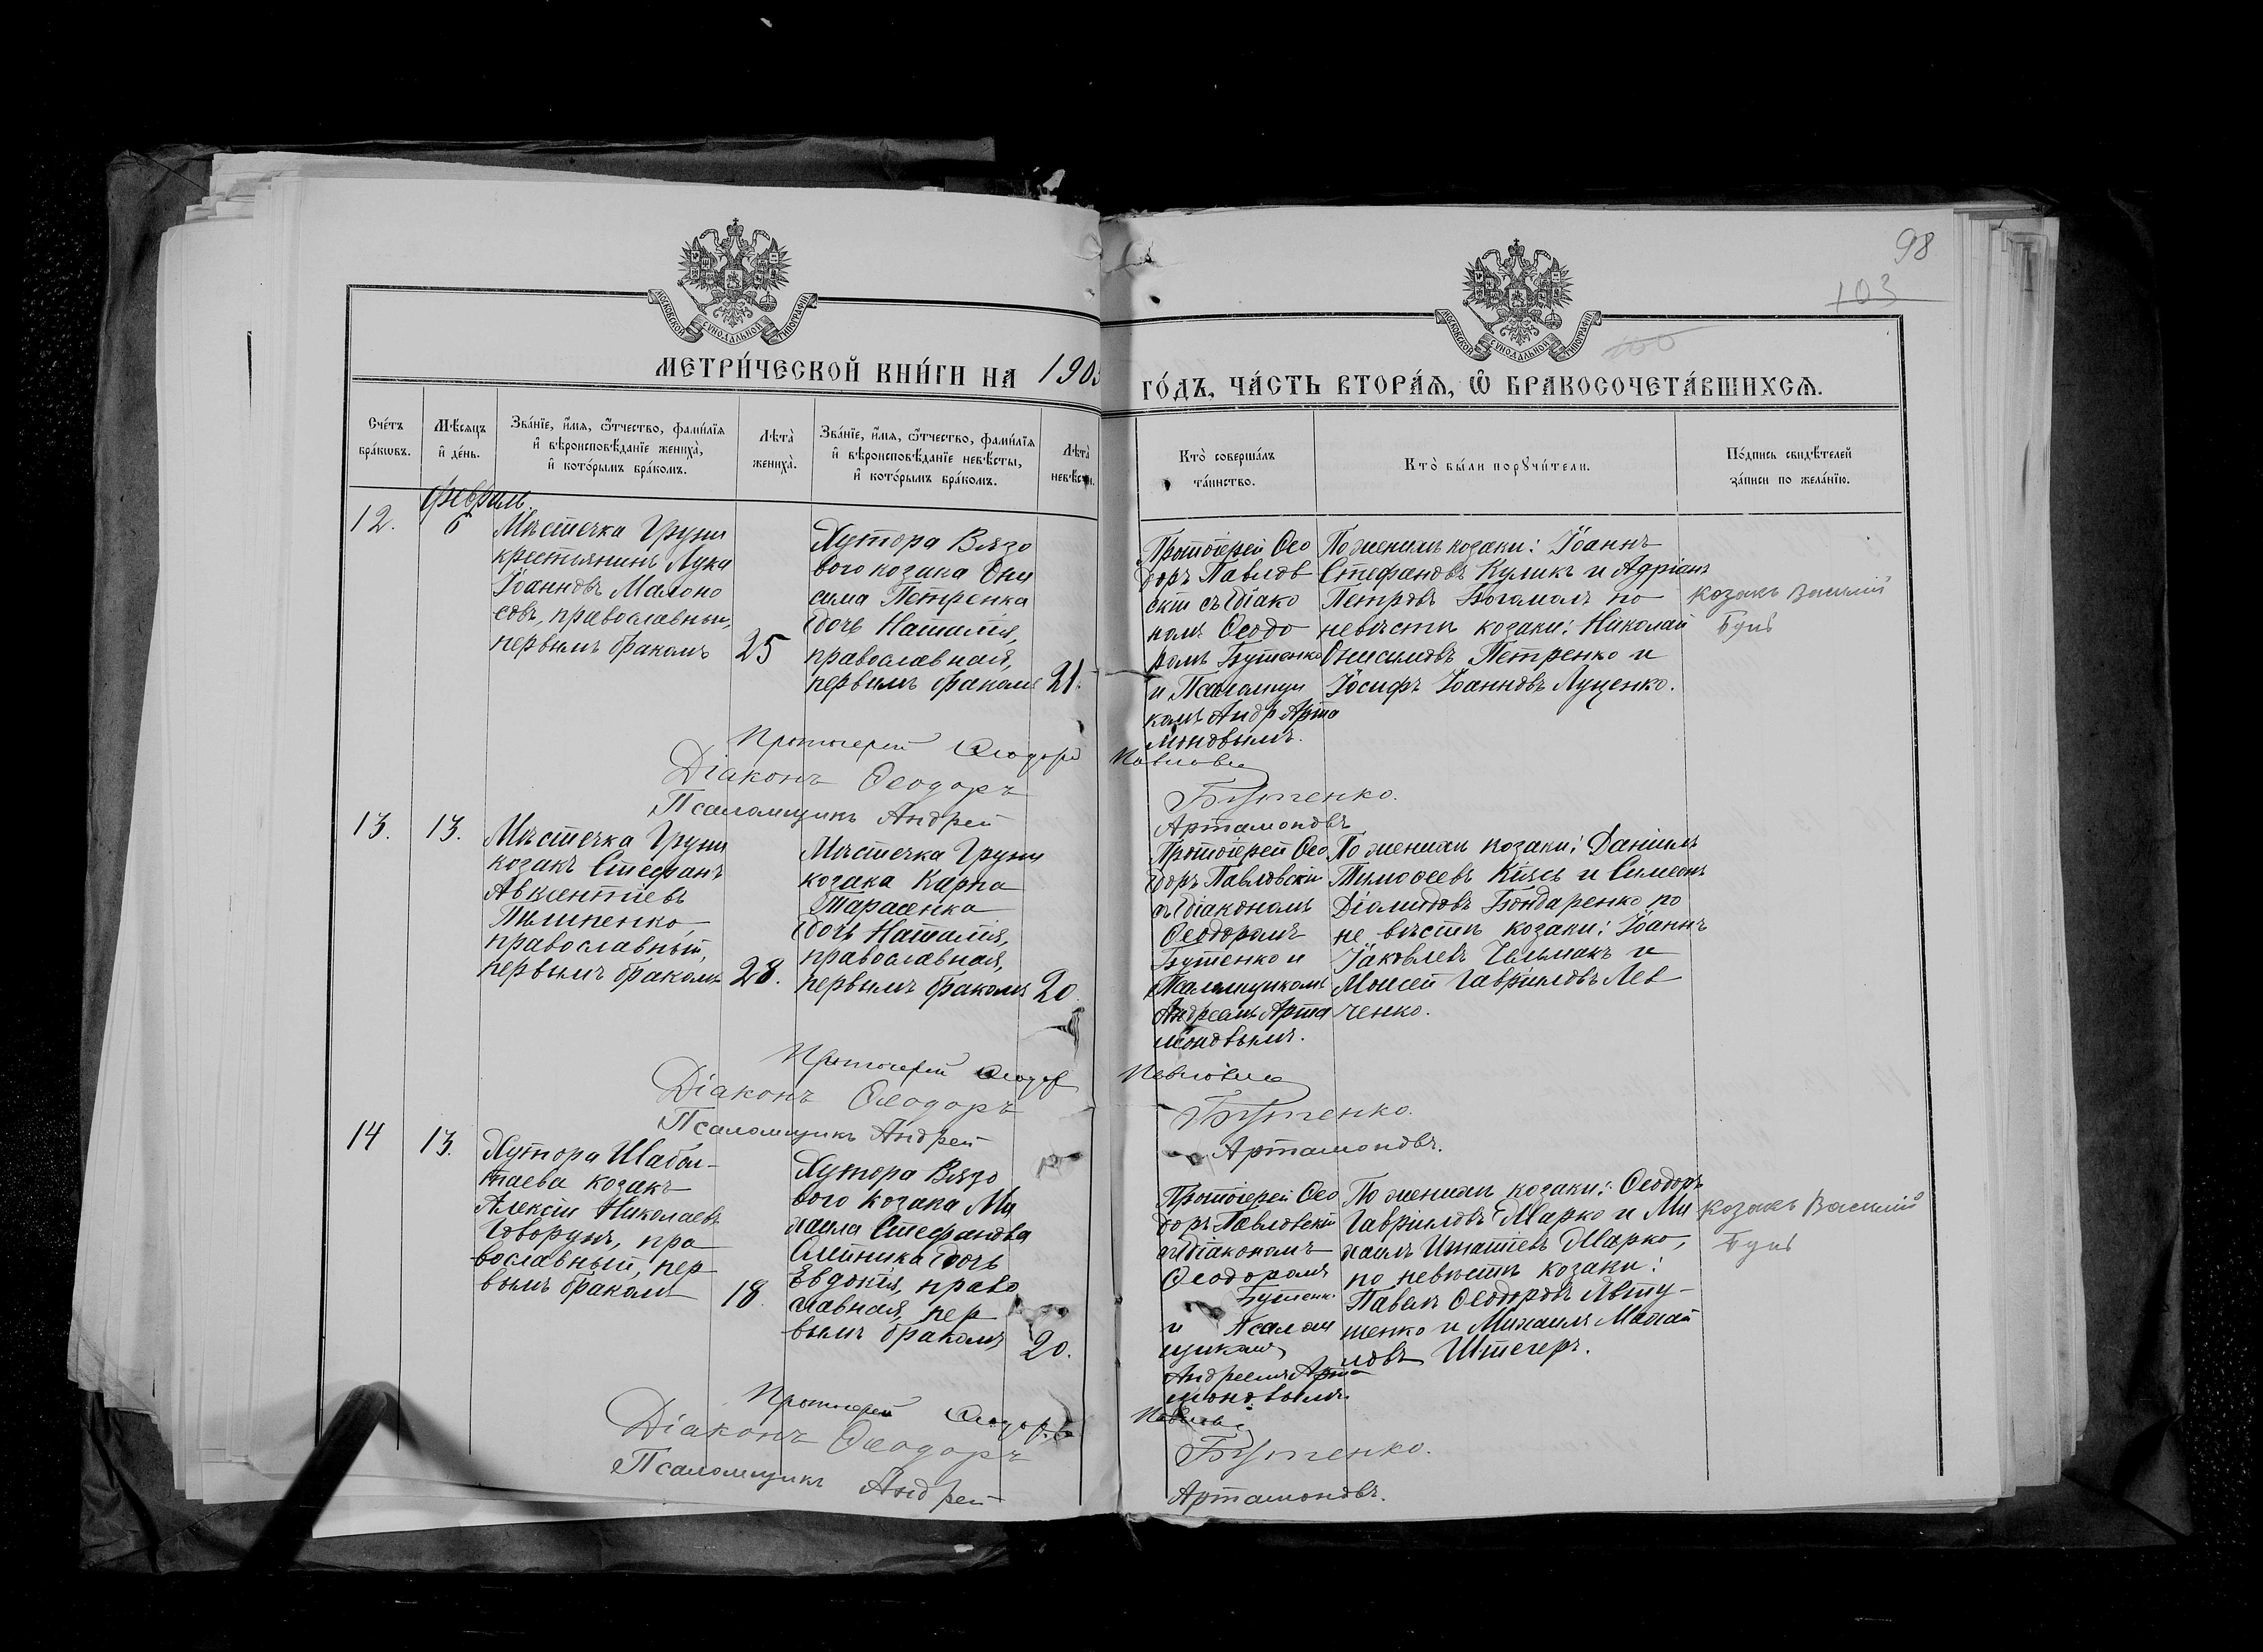 98
103
МОСКОВСКОЙ СѴНОДАЛЬНОЙ ТИПОГРАФІИ
МОСКОВСКОЙ СѴНОДАЛЬНОЙ ТИПОГРАФІИ
МЕТРИ́ЧЕСКОЙ КНИ́ГИ НА 190
ГО́ДЪ, ЧА́СТЬ ВТОРА́Ѧ, Ѽ БРАКОСОЧЕТА́ВШИХСѦ.
Сче́тъ бра́кѡвъ.
Мѣ́сѧцъ и҆ де́нь.
Зва́нїе, и҆́мѧ, ѻ҆́тчество, фами́лїѧ и҆ вѣроисповѣ́данїе жениха̀, и҆ кото́рымъ бра́комъ.
Лѣта̀ жениха̀.
Зва́нїе, и҆́мѧ, ѻ҆́тчество, фами́лїѧ и҆ вѣроисповѣ́данїе невѣ́сты, и҆ кото́рымъ бра́комъ.
Лѣта̀ невѣ́сты.
Кто̀ соверша́лъ та́инство.
Кто̀ бы́ли порꙋчи́тели.
По́дпись свидѣ́телей за́писи по жела́нїю.
Февраль.
12.
6
Мѣстечка Груни
крестьянинъ Лука
Іоанновъ Малоно
совъ, православный,
первымъ бракомъ
25
Хутора Вязо
вого козака Они
сима Петренка
дочь Наталія,
православная,
первымъ бракомъ
21.
Протоіерей Ѳео
доръ Павлов
скій съ діако
номъ Ѳеодо
ромъ Бутенко
и Псаломщи
комъ Андр Арта
моновымъ.
По женихѣ козаки: Іоаннъ
Стефановъ Куликъ и Адріанъ
Петровъ Богамалъ по
невѣстѣ козаки: Николай
Онисимовъ Петренко и
Іосифъ Іоанновъ Луценко.
козакъ Василій
Протоіерей Ѳеодоръ Павловскій
Діаконъ Ѳеодоръ Бутенко.
Псаломщикъ Андрей Артамоновъ
13.
13.
Мѣстечка Груни
козакъ Стефанъ
Авксентіевъ
Пилипенко,
православный,
первымъ бракомъ
28.
Мѣстечка Груни
козака Карпа
Тарасенка
дочь Наталія,
православная,
первымъ бракомъ
20
Протоіерей Ѳео
доръ Павловскій
съ діакономъ
Ѳеодоромъ
Бутенко и
Псаломщикомъ
Андреемъ Арта
моновымъ.
По женихѣ козаки: Даніилъ
Тимоѳеевъ Кіясь и Симеонъ
Діомидовъ Бондаренко по
не вѣстѣ козаки: Іоаннъ
Іаковлевъ Чальмакъ и
Моисей Гавриловъ Лев
ченко.
Протоіерей Ѳеодоръ Павловскій
Діаконъ Ѳеодоръ Бутенко.
Псаломщикъ Андрей Артамоновъ.
14
13.
Хутора Шабал-
таева козакъ
Алексій Николаевъ
Говорунъ, пра
вославный, пер
вымъ бракомъ
18.
Хутора Вязо
вого козака Ми
хаила Стефанова
Олейника дочь
Евдокія, право
славная, пер
вымъ бракомъ
20.
Протоіерей Ѳео
доръ Павловскій
съ діакономъ
Ѳеодоромъ
Бутенко
и Псалом
щикомъ
Андреемъ Арта
моновымъ.
По женихѣ козаки: Ѳеодоръ
Гавриловъ Марко и Ми
хаилъ Игнатіевъ Марко,
по невѣстѣ козаки:
Павелъ Ѳеодоровъ Явту-
шенко и Михаилъ Михай
ловъ Штегеръ.
козакъ Василій
Протоіерей Ѳеодоръ Павловскій
Діаконъ Ѳеодоръ Бутенко.
Псаломщикъ Андрей Артамоновъ.